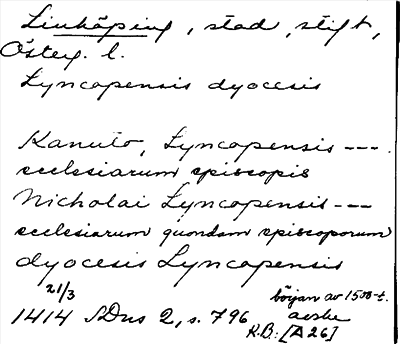 Linköping, stad, stift,
Österg. l.
Lyncopensis dyocesis
Kanuto, Lyncopensis ---
ecclesiarum episcopis
Nicholai Lyncopensis ---
ecclesiarum quondam episcoporum
dyocesis Lyncopensis
21/3
1414 SDns 2, s. 796
början av 1500-t.
avskr
R.B: [A 26]